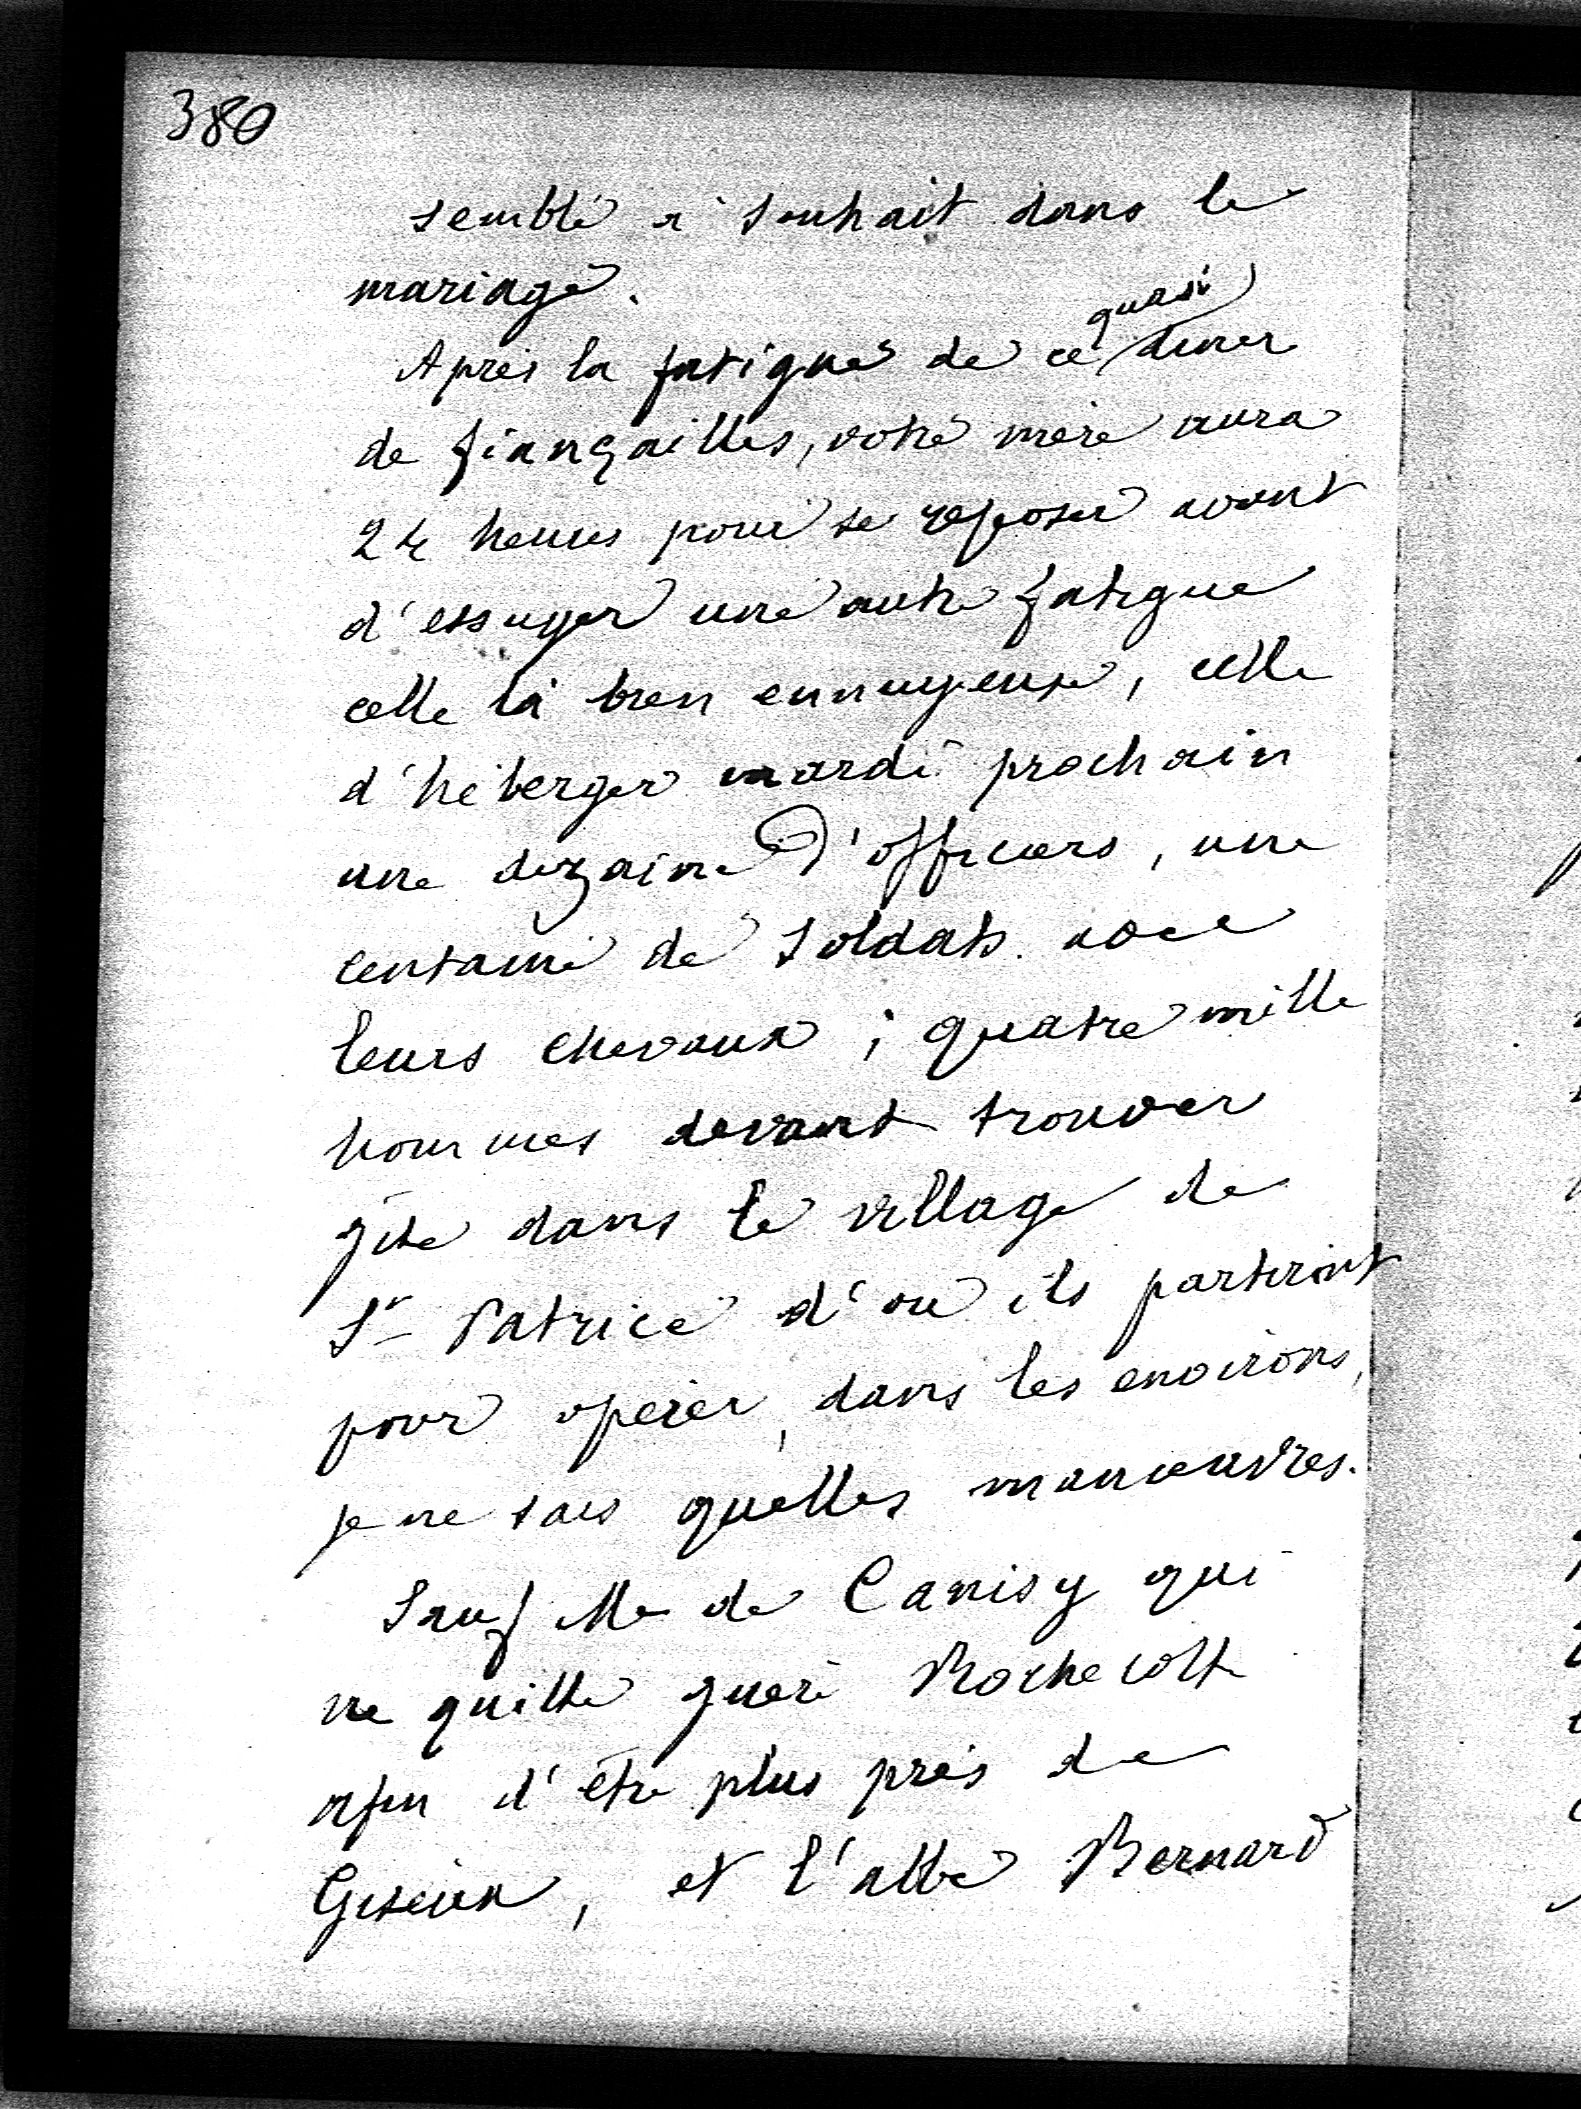 380
semble à souhait dans le
mariage.
Après la fatigue de ce quasi diner
de fiançailles, votre mère aura
24 heures pour se reposer avant
d'essuyer une autre fatigue
celle là bien ennuyeuse, celle
d'héberger mardi prochain
une dizaine d'officiers, une
centaine de soldats avec
leurs chevaux ; quatre mille
hommes devant trouver
gîte dans le village de
St Patrice d'où ils partiront
pour opérer, dans les environs,
je ne sais quelles manœuvres.
Sauf Me de Canisy qui
ne quitte guère Rochecotte
afin d'être plus près de
Giseux, et l'abbé Bernard